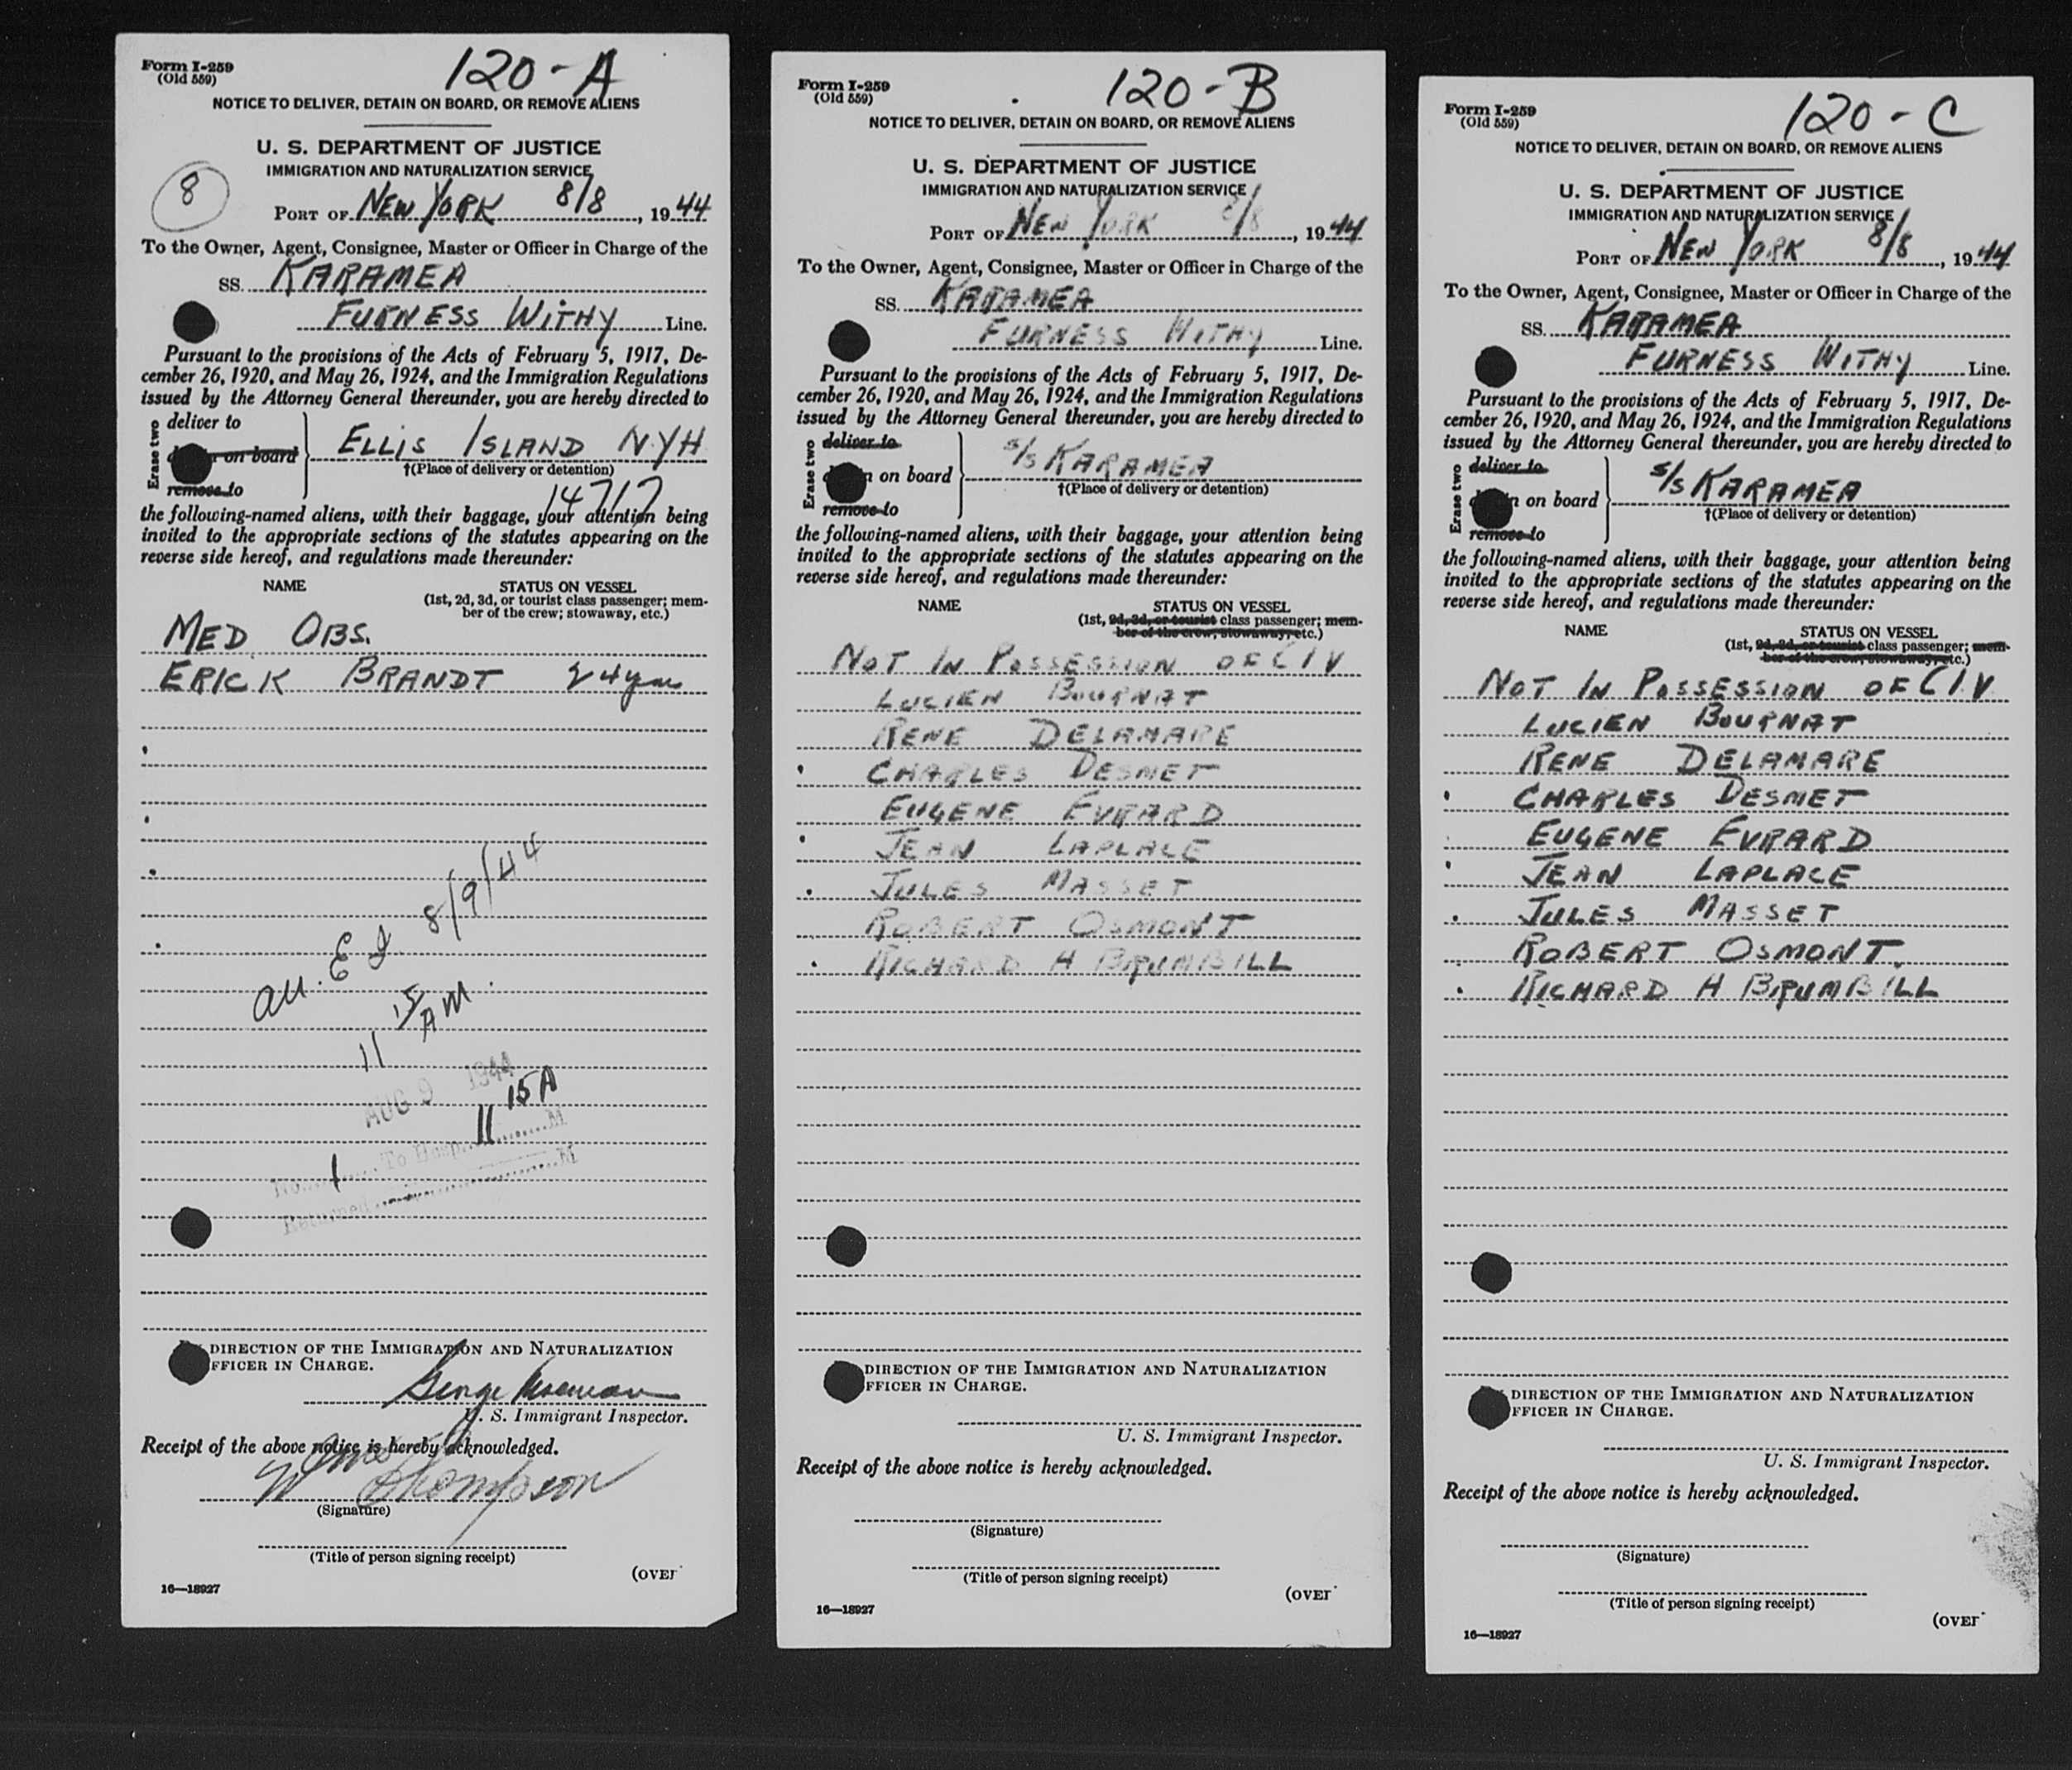 120-A
Form I-259
(Old 559)
NOTICE TO DELIVER, DETAIN ON BOARD, OR REMOVE ALIENS
U. S. DEPARTMENT OF JUSTICE
IMMIGRATION AND NATURALIZATION SERVICE
8
PORT OF NEW YORK 8/8, 1944
To the Owner, Agent, Consignee, Master or Officer in Charge of the
SS. KARAMEA
FURNESS WITHY Line.
Pursuant to the provisions of the Acts of February 5, 1917, De-
cember 26, 1920, and May 26, 1924, and the Immigration Regulations
issued by the Attorney General thereunder, you are hereby directed to
Erase two
deliver to
on board
remove to
ELLIS ISLAND NYH
†(Place of delivery or detention)
14717
the following-named aliens, with their baggage, your attention being
invited to the appropriate sections of the statutes appearing on the
reverse side hereof, and regulations made thereunder:
NAME STATUS ON VESSEL
(1st, 2d, 3d, or tourist class passenger; mem-
ber of the crew; stowaway, etc.)
MED OBS.
ERICK BRANDT 24 yrs
arr. E I 8/9/44
11 15 AM.
AUG 9 1944
11 15 A
No. 1 To Hosp. M
Returned M
DIRECTION OF THE IMMIGRATION AND NATURALIZATION
FFICER IN CHARGE.
George
U. S. Immigrant Inspector.
Receipt of the above notice is hereby acknowledged.
W Thompson
(Signature)
(Title of person signing receipt)
(OVER
16—18927
120-B
Form I-259
(Old 559)
NOTICE TO DELIVER, DETAIN ON BOARD, OR REMOVE ALIENS
U. S. DEPARTMENT OF JUSTICE
IMMIGRATION AND NATURALIZATION SERVICE
PORT OF NEW YORK 8/8, 1944
To the Owner, Agent, Consignee, Master or Officer in Charge of the
SS. KARAMEA
FURNESS WITHY Line.
Pursuant to the provisions of the Acts of February 5, 1917, De-
cember 26, 1920, and May 26, 1924, and the Immigration Regulations
issued by the Attorney General thereunder, you are hereby directed to
Erase two
deliver to
n on board
remove to
S/S KARAMEA
†(Place of delivery or detention)
the following-named aliens, with their baggage, your attention being
invited to the appropriate sections of the statutes appearing on the
reverse side hereof, and regulations made thereunder:
NAME STATUS ON VESSEL
(1st, 2d, 3d, or tourist class passenger; mem-
ber of the crew; stowaway, etc.)
NOT IN POSSESSION OF C I V
LUCIEN BOURNAT
RENE DELAMARE
CHARLES DESMET
EUGENE EVRARD
JEAN LAPLACE
JULES MASSET
ROBERT OSMONT
RICHARD H BRUMBILL
DIRECTION OF THE IMMIGRATION AND NATURALIZATION
FFICER IN CHARGE.
U. S. Immigrant Inspector.
Receipt of the above notice is hereby acknowledged.
(Signature)
(Title of person signing receipt)
(OVER
16—18927
120-C
Form I-259
(Old 559)
NOTICE TO DELIVER, DETAIN ON BOARD, OR REMOVE ALIENS
U. S. DEPARTMENT OF JUSTICE
IMMIGRATION AND NATURALIZATION SERVICE
PORT OF NEW YORK 8/8, 1944
To the Owner, Agent, Consignee, Master or Officer in Charge of the
SS. KARAMEA
FURNESS WITHY Line.
Pursuant to the provisions of the Acts of February 5, 1917, De-
cember 26, 1920, and May 26, 1924, and the Immigration Regulations
issued by the Attorney General thereunder, you are hereby directed to
Erase two
deliver to
n on board
remove to
S/S KARAMEA
†(Place of delivery or detention)
the following-named aliens, with their baggage, your attention being
invited to the appropriate sections of the statutes appearing on the
reverse side hereof, and regulations made thereunder:
NAME STATUS ON VESSEL
(1st, 2d, 3d, or tourist class passenger; mem-
ber of the crew; stowaway, etc.)
NOT IN POSSESSION OF C I V
LUCIEN BOURNAT
RENE DELAMARE
CHARLES DESMET
EUGENE EVRARD
JEAN LAPLACE
JULES MASSET
ROBERT OSMONT.
RICHARD H BRUMBILL
DIRECTION OF THE IMMIGRATION AND NATURALIZATION
FFICER IN CHARGE.
U. S. Immigrant Inspector.
Receipt of the above notice is hereby acknowledged.
(Signature)
(Title of person signing receipt)
(OVER
16—18927